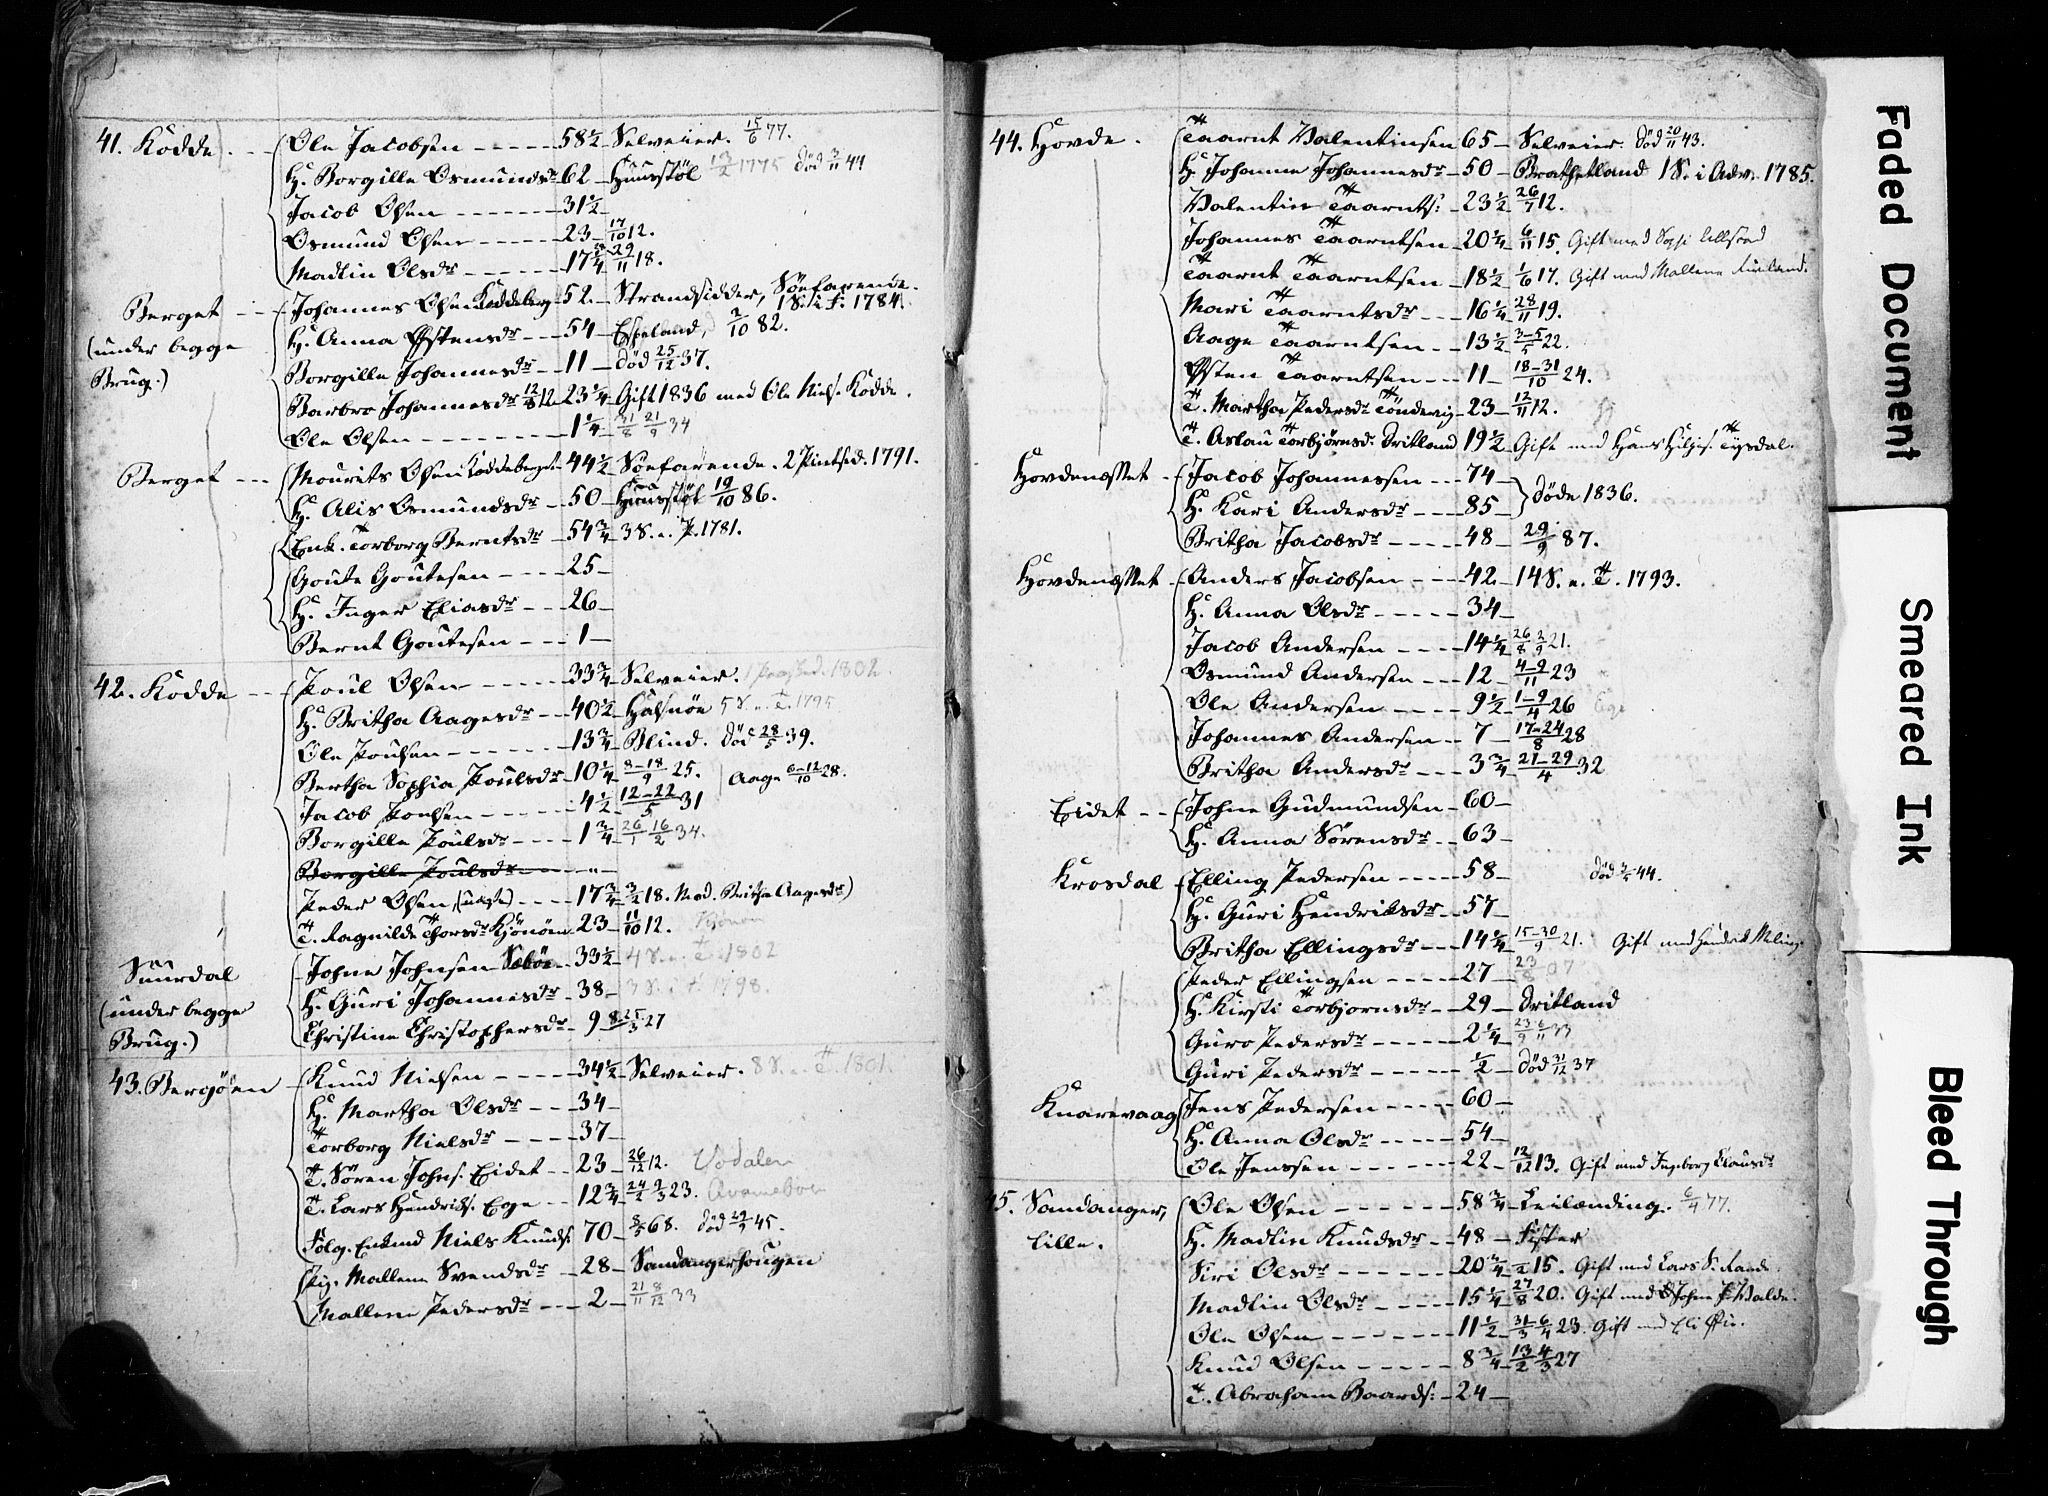 41. Kodde. Ole Jacobsen 58½ Selveier. 15/6 77.
H. Borgille Osmundsdr 62 Huusstøl 1775 død 3/11 44
Jacob Olsen 31½
Osmund Olsen 23 17/10 12.
Madlin Olsdr 17¾ 29/11 18.
Berget Johannes Olsen Koddeberg 52. Strandsidder, Söefarende. 1 S. i F. 1784.
(under begge H. Anna Østensdr 54 Espeland, 2/10 82.
Brug.) Borgille Johannesdr 11 død 25/12 37.
Barbro Johannesdr 12/8 12 23¼ Gift 1836 med Ole Niels. Kodde.
Ole Olsen 1¼ 31/8 21/9 34
Berget Mourits Olsen Koddeberget 44½ Söefarende. 2 Pintsed. 1791.
H. Alis Osmundsdr 50 Huusstøl 19/10 86.
Enk. Torborg Berntsdr 54¾ 3 S. e. P. 1781.
Goute Goutesen 25
H. Inger Eliasdr 26
Bernt Goutesen 1
42. Kodde Poul Olsen 33¾ Selveier. 1802.
H. Britha Aagesdr 40½ Halsnöe 5 S. e. T. 1795
Ole Poulsen 13¾ Blind. död 28/5 39.
Bertha Sophia Poulsdr 10¼ 8-18/9 25. Aage 6-12/10 28.
Jacob Poulsen 4½ 12-22/5 31
Borgille Poulsdr 1¾ 26/1 16/2 34.
Borgille Poulsdr
Peder Olsen, (uægte) 17¾ 3/2 18. Mod. Britha Aagesdr)
T. Ragnilde Thorsdr Kjönöen 23 11/10 12.
Suurdal Johne Johnsen Sebøe 33½ 4 S. e. T. 1802
(under begge H. Guri Johannesdr 38 3 S. i F. 1798.
Brug.) Christine Christophersdr 9 8/3 25/3 27
43. Bergöen Knud Nielsen 34½ Selveier. 8 S. e. T. 1801.
H. Martha Olsdr 34
Torborg Nielsdr 37
T. Sören Johns. Eidet 23 26/12 12. Vodalen
T. Lars Hendriks. Ege 12¾ 24/2 9/3 23.
Fölg. Enkmd Niels Knuds. 70 8/5 68. död 29/4 45.
Pig. Mallene Svendsdr 28 Sandangerhougen
Mallene Pedersdr 2 21/11 8/12 33
44. Hovde. Taarnt Valentinsen 65 Selveier. död 20/11 43.
H. Johanne Johannesdr 50 Brathetland 1 S. i Adv. 1785.
Valentin Taarnts: 23½ 26/7 12.
Johannes Taarntsen 20¼ 6/11 15. Gift med
Taarnt Taarntsen 18½ 1/6 17. Gift med Mallene
Mari Taarntsdr 16¼ 28/11 19.
Aage Taarntsen 13½ 3-5/5 22.
Østen Taarntsen 11 18-31/10 24.
T. Martha Pedersdr Töndevig 23 12/11 12.
T. Aslau Torbjørnsdr. Dritland 19½ Gift med Hans Helgis. Tysdal.
Hovdenæsset Jacob Johannessen 74
H. Kari Andersdr 85 } døde 1836.
Britha Jacobsdr 48 29/9 87.
Hovdenæsset Anders Jacobsen 42. 14 S. e. T. 1793.
H. Anna Olsdr 34
Jacob Andersen 14¼ 26/8 2/9 21.
Osmund Andersen 12 4-9/11 23
Ole Andersen 9½ 1-9/4 26
Johannes Andersen 7 17-24/8 28
Britha Andersdr 3¾ 21-29/4 32
Eidet Johne Gudmundsen 60
H. Anna Sörensdr 63
Krosdal Elling Pedersen 58 död 44.
H. Guri Hendriksdr 57
Britha Ellingsdr 14¼ 15-30/9 21. Gift med Hendrik Meling.
Peder Ellingsen 27 23/8 07
H. Kirsti Torbjornsdr 29 Dritland
Guro Pedersdr 2¼ 23/9 6/11 33
Guri Pedersdr ½ död 31/12 37
Knarevaag Jens Pedersen 60
H. Anna Olsdr 54
Ole Jenssen 22 12/12 13. Gift med Ingeborg Clausdr
45. Sandanger, Ole Olsen 58¾ Leilænding. 6/4 77.
Lille. H. Madlin Knudsdr 48 Fister
Siri Olsdr 20¾ 15. Gift med Lars S. Rande.
Madlin Olsdr 15¼ 27/8 20. Gift med John J. Valde.
Ole Olsen 11½ 31/3 6/4 23. Gift med Eli
Knud Olsen 8¾ 13/2 4/3 27
T. Abraham Baards: 24
Faded Document
Smeared Ink
Bleed Through